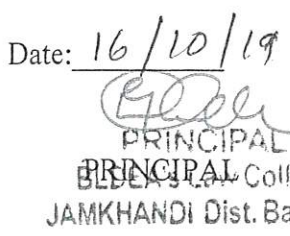 Date: 16/10/19
PRINCIPAL
PRINCIPAL
BLDEA's Law Coll
JAMKHANDI Dist. Ba